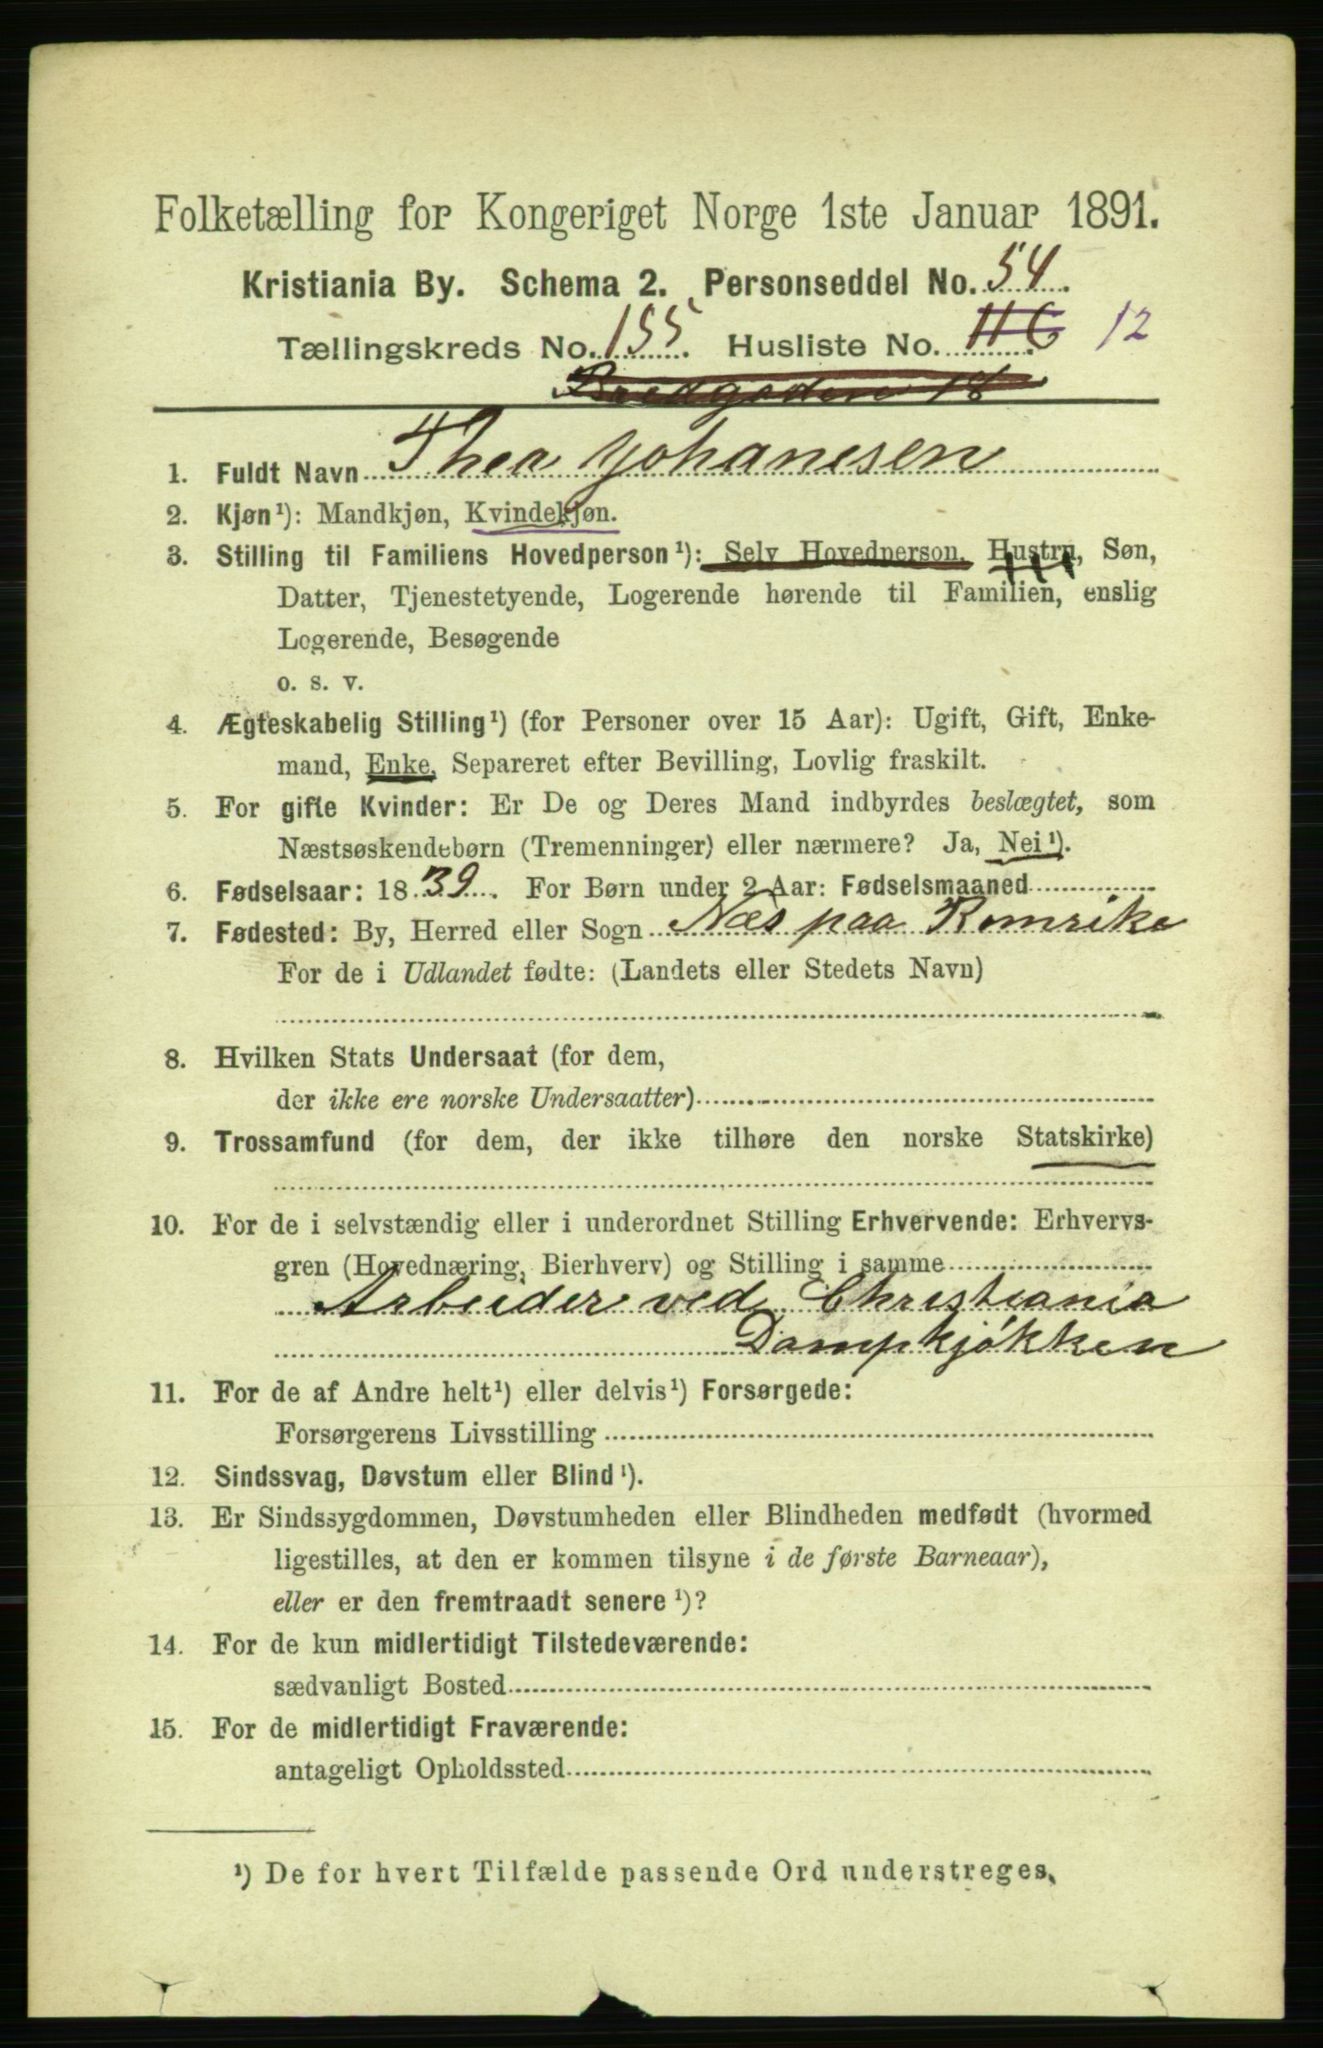 Folketælling for Kongeriget Norge 1ste Januar 1891.
Kristiania By. Schema 2. Personseddel No. 54.
Tællingskreds No. 155. Husliste No. 11 C 12
Bredgaden 18
1. Fuldt Navn Thea Johanesen
2. Kjøn¹): Mandkjøn, Kvindekjøn.
3. Stilling til Familiens Hovedperson¹): Selv Hovedperson, Hustru, Søn,
Datter, Tjenestetyende, Logerende hørende til Familien, enslig
Logerende, Besøgende
o. s. v.
4. Ægteskabelig Stilling¹) (for Personer over 15 Aar): Ugift, Gift, Enke-
mand, Enke, Separeret efter Bevilling, Lovlig fraskilt.
5. For gifte Kvinder: Er De og Deres Mand indbyrdes beslægtet, som
Næstsøskendebørn (Tremenninger) eller nærmere? Ja, Nei¹).
6. Fødselsaar: 1839. For Børn under 2 Aar: Fødselsmaaned
7. Fødested: By, Herred eller Sogn Næs paa Romrike
For de i Udlandet fødte: (Landets eller Stedets Navn)
8. Hvilken Stats Undersaat (for dem,
der ikke ere norske Undersaatter)
9. Trossamfund (for dem, der ikke tilhøre den norske Statskirke)
10. For de i selvstændig eller i underordnet Stilling Erhvervende: Erhvervs-
gren (Hovednæring, Bierhverv) og Stilling i samme
Arbeider ved Christiania
Dampkjökken
11. For de af Andre helt¹) eller delvis¹) Forsørgede:
Forsørgerens Livsstilling
12. Sindssvag, Døvstum eller Blind¹).
13. Er Sindssygdommen, Døvstumheden eller Blindheden medfødt (hvormed
ligestilles, at den er kommen tilsyne i de første Barneaar),
eller er den fremtraadt senere¹)?
14. For de kun midlertidigt Tilstedeværende:
sædvanligt Bosted
15. For de midlertidigt Fraværende:
antageligt Opholdssted
¹) De for hvert Tilfælde passende Ord understreges.